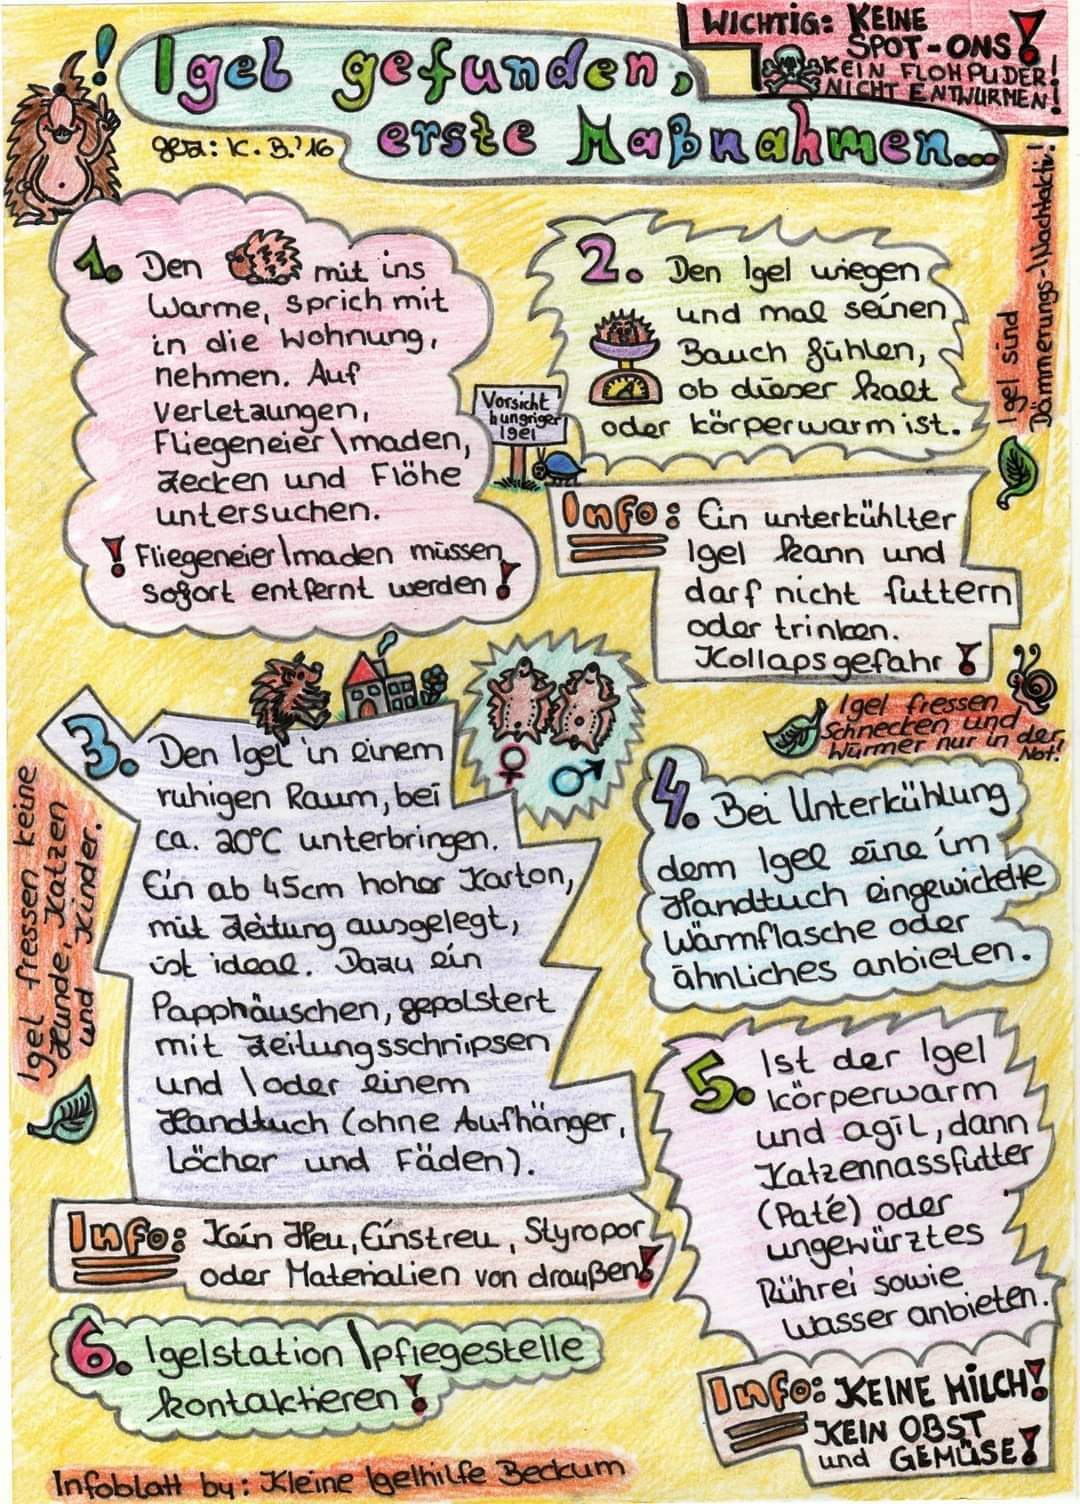 Igel gefunden,
erste Maßnahmen...
gez.: K. B. '16
WICHTIG: KEINE
SPOT-ONS!
KEIN FLOHPUDER!
NICHT ENTWURMEN!
Igel sind
Dämmerungs-\Nachtaktiv!
1. Den mit ins
Warme, sprich mit
in die Wohnung,
nehmen. Auf
Verletzungen,
Fliegeneier\maden,
Zecken und Flöhe
untersuchen.
! Fliegeneier\maden müssen
sofort entfernt werden!
2. Den Igel wiegen
und mal seinen
Bauch fühlen,
ob dieser kalt
oder körperwarm ist.
Vorsicht
hungriger
Igel
Info: Ein unterkühlter
Igel kann und
darf nicht futtern
oder trinken.
Kollapsgefahr!
Igel fressen
Schnecken und
Würmer nur in der
Not!
3. Den Igel in einem
ruhigen Raum, bei
ca. 20°C unterbringen.
Ein ab 45cm hoher Karton,
mit Zeitung ausgelegt,
ist ideal. Dazu ein
Papphäuschen, gepolstert
mit Zeitungsschnipsen
und \oder einem
Handtuch (ohne Aufhänger,
Löcher und Fäden).
♀ ♂
Igel fressen keine
Hunde, Katzen
und Kinder.
Info: Kein Heu, Einstreu, Styropor
oder Materialien von draußen!
4. Bei Unterkühlung
dem Igel eine im
Handtuch eingewickelte
Wärmflasche oder
ähnliches anbieten.
5. Ist der Igel
körperwarm
und agil, dann
Katzennassfutter
(Paté) oder
ungewürztes
Rührei sowie
Wasser anbieten.
Info: KEINE MILCH!
KEIN OBST
und GEMÜSE!
6. Igelstation \pflegestelle
kontaktieren!
Infoblatt by: Kleine Igelhilfe Beckum